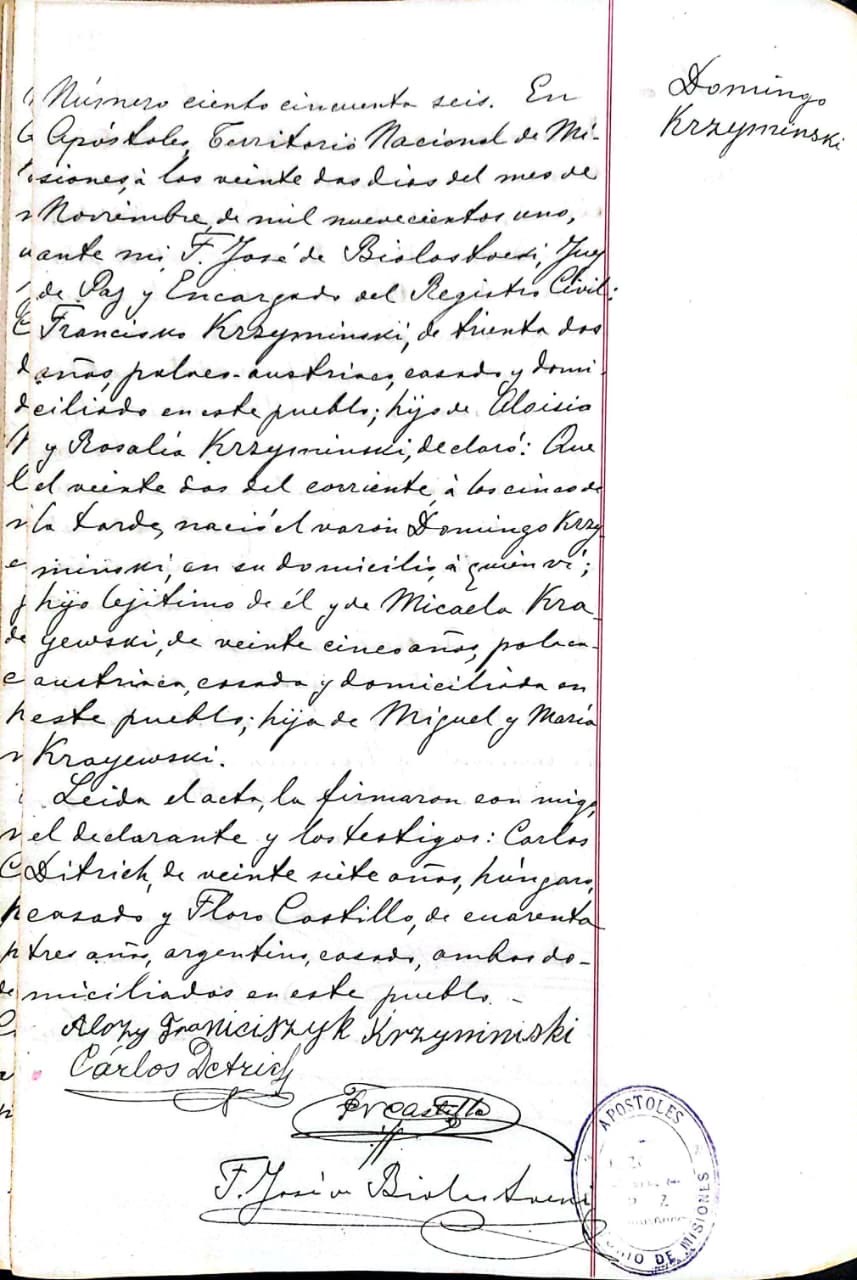 Domingo
Krzyminski
Número ciento cincuenta seis. En
Apóstoles, Territorio Nacional de Mi-
siones, à los veinte dos dias del mes de
Noviembre, de mil nuevecientos uno,
ante mi, F. José de Bialostocki, Juez
de Paz y Encargado del Registro Civil:
Francisko Krzyminski, de trienta dos
años, polaco-austriaco, casado y domi-
ciliado en este pueblo; hijo de Aloisio
y Rosalía Krzyminski, declaró: Que
el veinte dos del corriente, à las cinco de
la tarde, nació el varon Domingo Krzy
minski, en su domicilio, à quien vi;
hijo lejítimo de él y de Micaela Kra-
yewski, de veinte cinco años, polaca-
austriaca, casada y domiciliada en
este pueblo; hija de Miguel y Maria
Krayewski.
Leida el acta, la firmaron con migo,
el declarante y los testigos: Carlos
Ditrich, de veinte siete años, húngaro,
casado y Floro Castillo, de cuarenta
tres años, argentino, casado, ambos do-
miciliados en este pueblo. -
Alozy Franiciszyk Krzyminiski
Cárlos Detrich
Castillo
F. José de Bialostocki
APOSTOLES
DE MISIONES